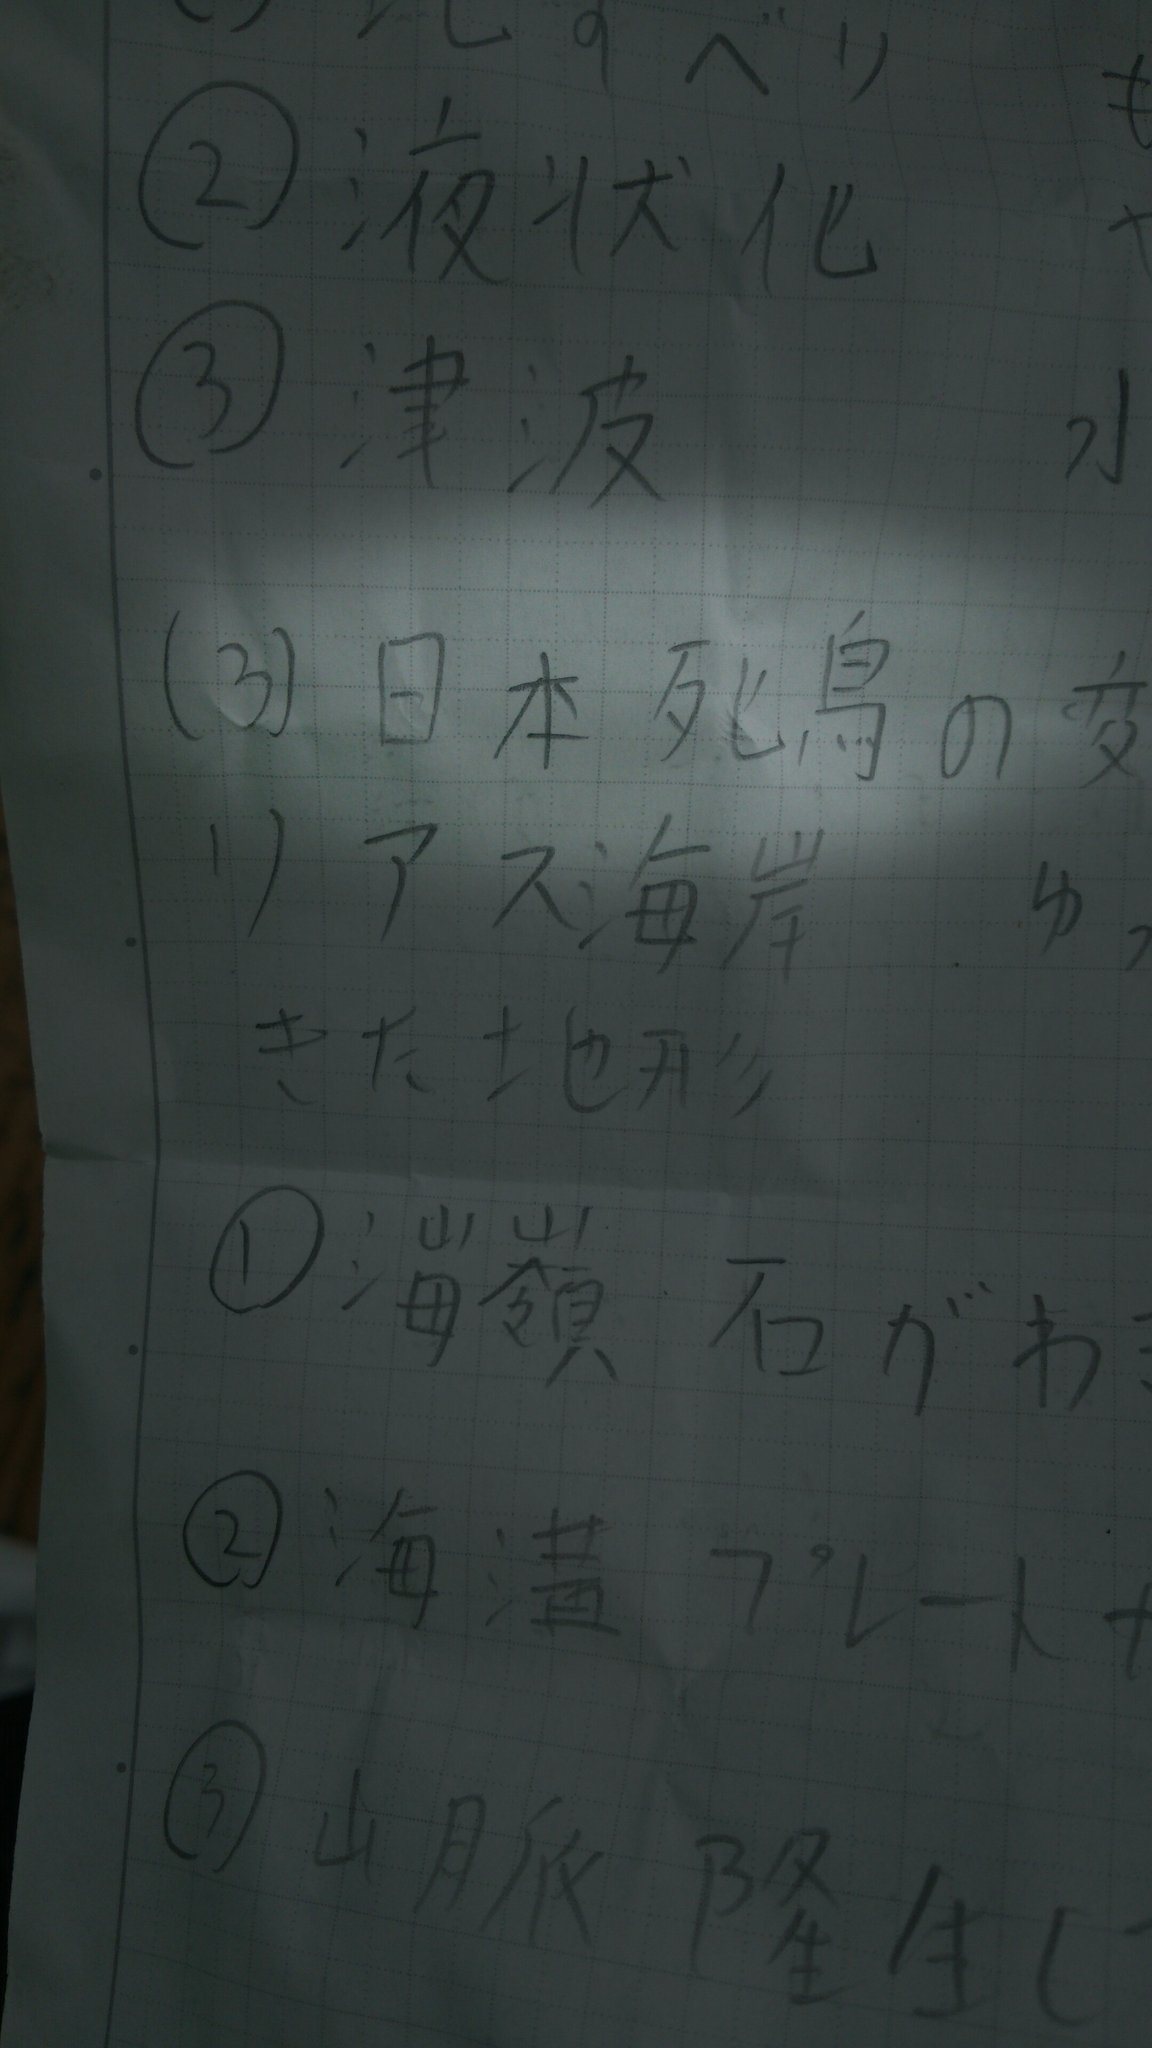 すべり も
② 液状化
③ 津波 水
(3) 日本死鳥の変
リアス海岸 ゆ
きた地形
① 海嶺 石がわ
② 海溝 プレート
③ 山脈 隆生し